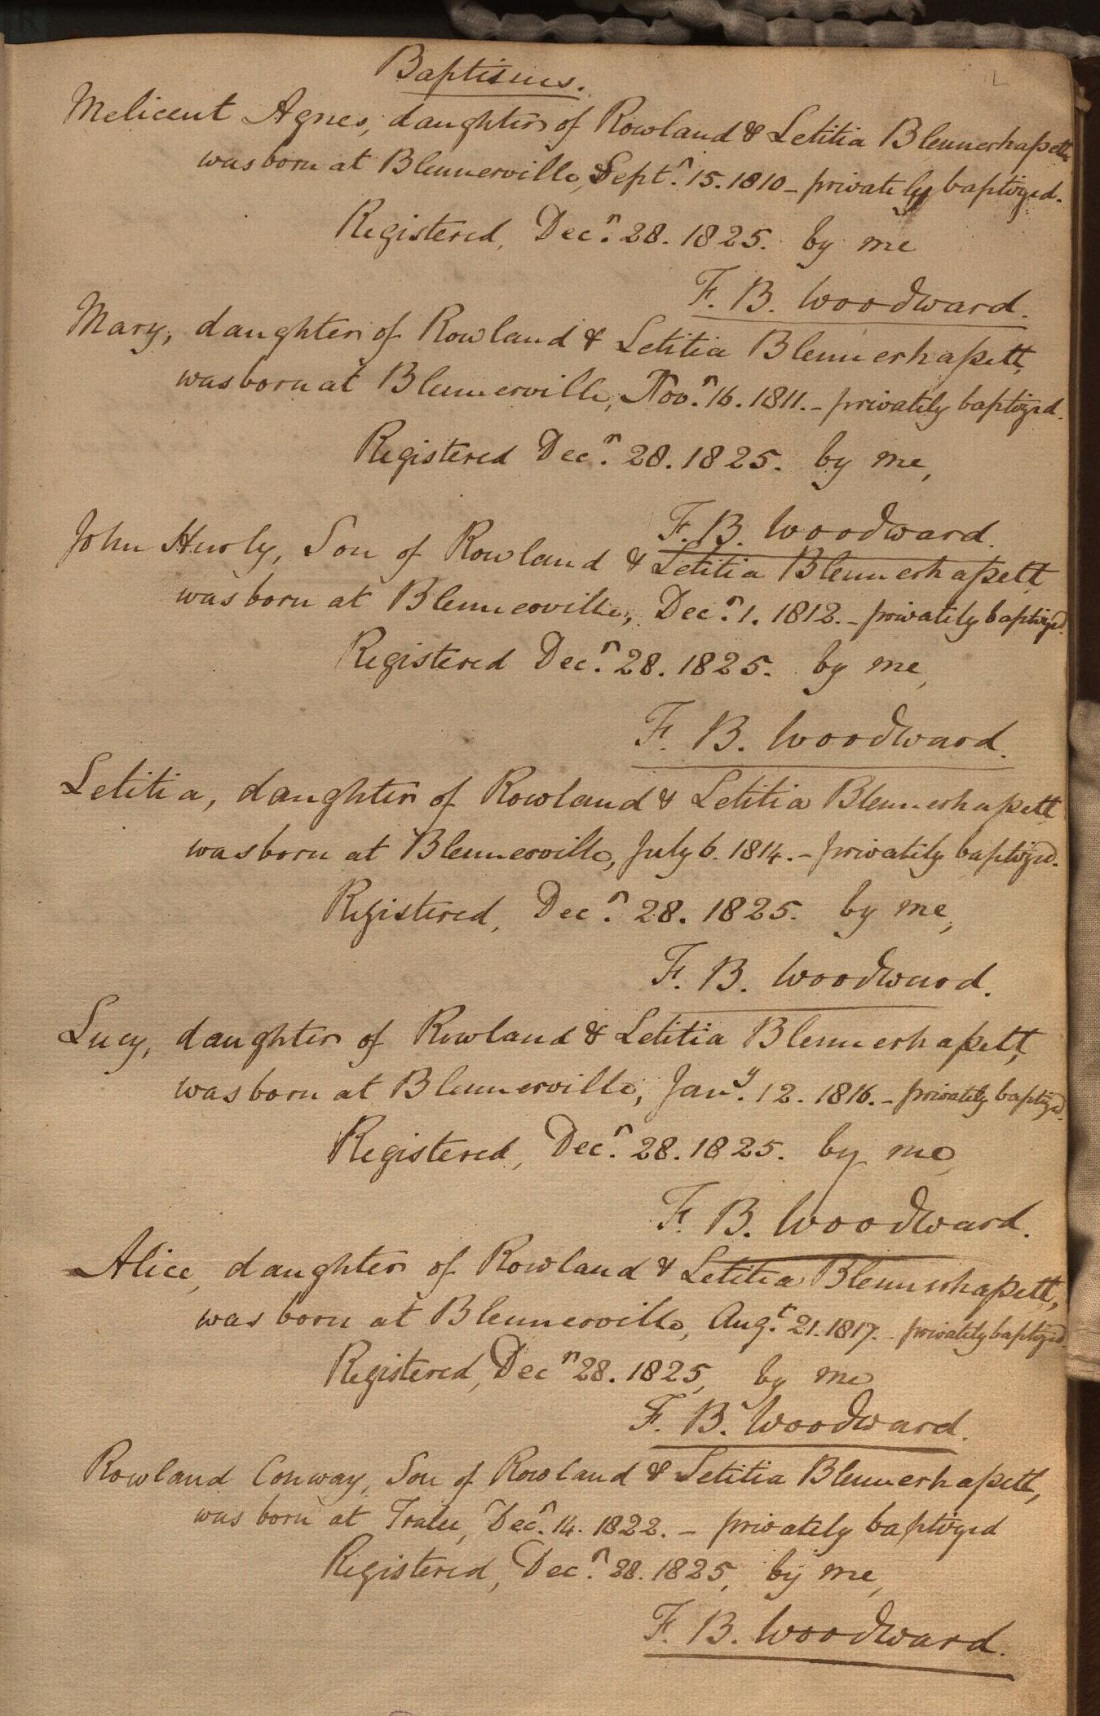 Baptisms.
Melicent Agnes, daughter of Rowland & Letitia Blennerhaſsett
was born at Blennerville, Septr. 15. 1810 – privately baptized.
Registered, Decr. 28. 1825. by me
F. B. Woodward.
Mary, daughter of Rowland & Letitia Blennerhaſsett,
was born at Blennerville, Novr. 16. 1811. – privately baptized.
Registered Decr. 28. 1825. by me,
F. B. Woodward.
John Hurly, Son of Rowland & Letitia Blennerhaſsett
was born at Blennerville, Decr. 1. 1812. – privately baptized.
Registered Decr. 28. 1825. by me,
F. B. Woodward.
Letitia, daughter of Rowland & Letitia Blennerhaſsett
was born at Blennerville, July 6. 1814. – privately baptized.
Registered, Decr. 28. 1825. by me,
F. B. Woodward.
Lucy, daughter of Rowland & Letitia Blennerhaſsett,
was born at Blennerville, Jany. 12. 1816. – privately baptized.
Registered, Decr. 28. 1825. by me
F. B. Woodward.
Alice, daughter of Rowland & Letitia Blennerhaſsett,
was born at Blennerville, Augt. 21. 1817. privately baptized
Registered, Decr 28. 1825, by me
F. B. Woodward.
Rowland Conway, Son of Rowland & Letitia Blennerhaſsett,
was born at Tralee, Decr. 14. 1822. – privately baptized
Registered, Decr. 28. 1825, by me,
F. B. Woodward.